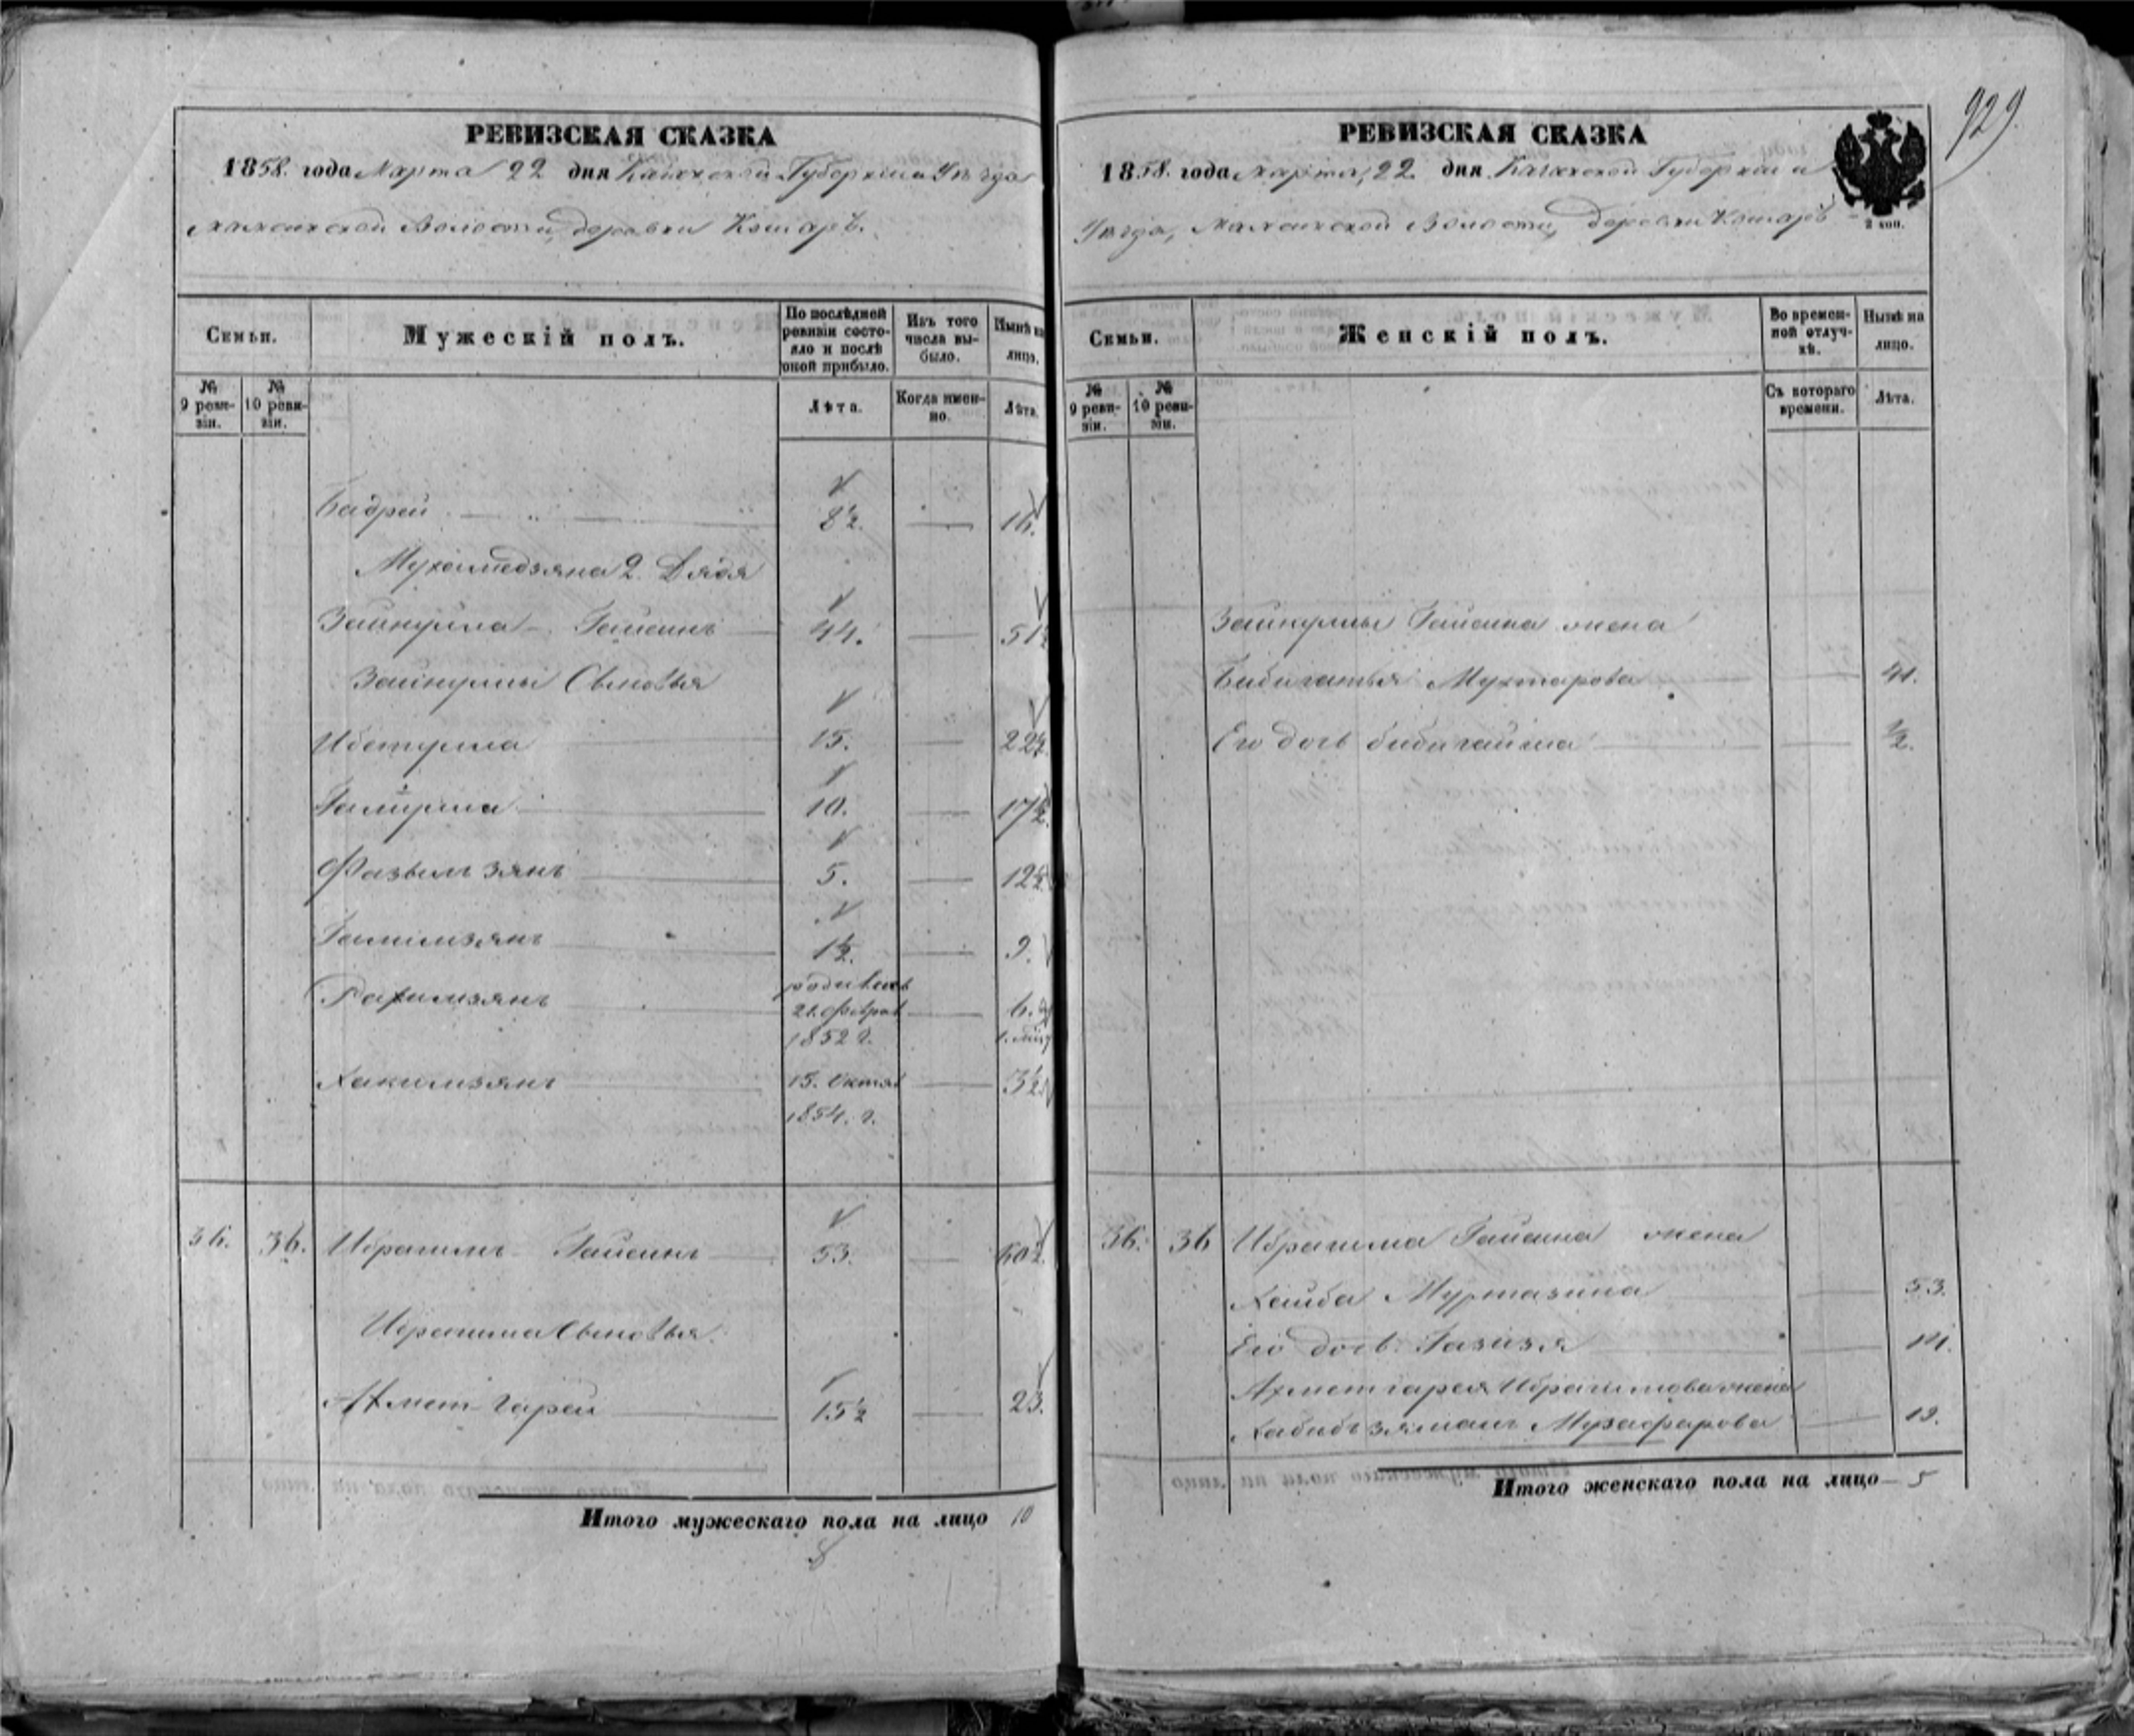 929
РЕВИЗСКАЯ СКАЗКА
1858. года Марта 22 дня Казанской Губернии и Уѣзда
Волости, деревни Кошаръ.
Семьи.
Мужескій полъ.
По послѣдней ревизіи состояло и послѣ оной прибыло.
Изъ того числа выбыло.
Нынѣ на лицо.
№ 9 ревизіи.
№ 10 ревизіи.
Лѣта.
Когда именно.
Лѣта.
Бадрей 8½. 16.
Мухаметзяна 2. Дядя
Зайнулла Гайсинъ 44. 51½
Зайнуллы Сыновья
Ибетулла 15. 22½.
Галиулла 10. 17½.
Фазылъ зянъ 5. 12½
Галимзянъ 1½. 9.
Рахимзянъ родился 21. Феврал 1852 г. 6.
Хакимзянъ 15. Октяб 1854. г. 3½
36. 36. Ибрагимъ Гайсинъ 53. 60½.
Ибрагима Сыновья.
Ахметъ Гарей 15½ 23.
Итого мужескаго пола на лицо 10
РЕВИЗСКАЯ СКАЗКА
2 коп.
1858. года марта, 22 дня Казанской Губерніи и
Уѣзда, Волости, деревни Кошаръ
Семьи.
Женскій полъ.
Во временной отлучкѣ.
Нынѣ на лицо.
№ 9 ревизіи.
№ 10 ревизіи.
Съ котораго времени.
Лѣта.
Зайнуллы Гайсина жена
Мухтарова 41.
Его дочь ½.
36. 36 Ибрагима Гайсина жена
Муртазина 53.
Его дочь Газизя 14.
Ахметъ гарея Ибрагимова жена
Хабибъ зяманъ Музафарова 19.
Итого женскаго пола на лицо 5